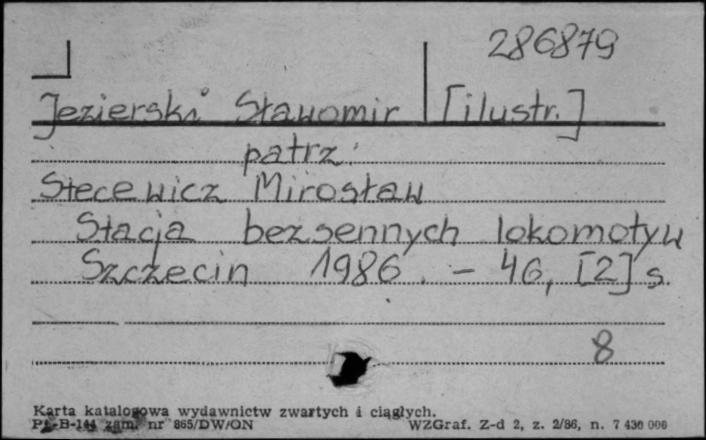 286879
Jezierski Sławomir [ilustr.]
patrz:
Stecewicz Mirosław
Stacja bezsennych lokomotyw
Szczecin 1986. – 46, [2] s.
8
Karta katalogowa wydawnictw zwartych i ciągłych.
Pu-B-144 zam. nr 865/DW/ON WZGraf. Z-d 2, z. 2/86, n. 7 430 000